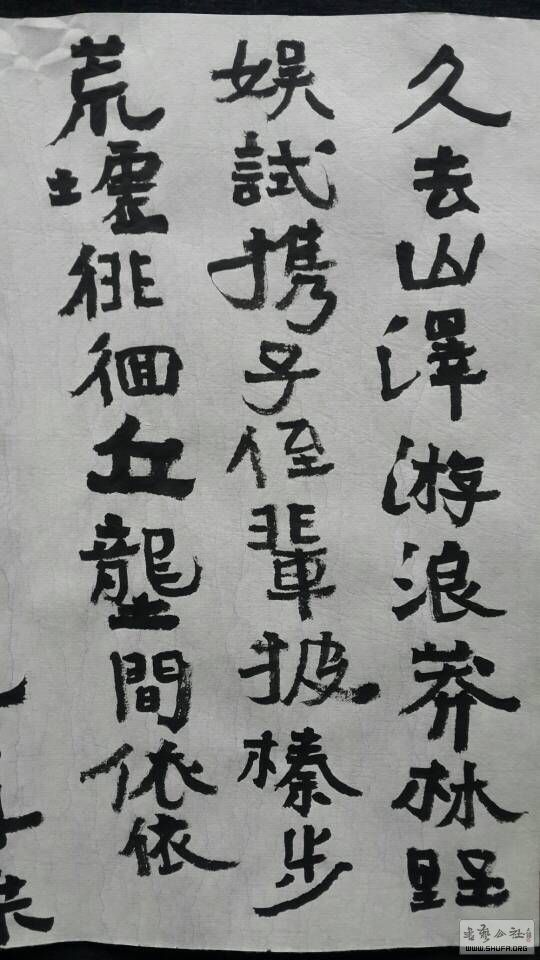 久去山澤游浪莽林野
娱試携子侄輩披榛步
荒墟徘徊丘壟間依依
书艺公社
WWW.SHUFA.ORG